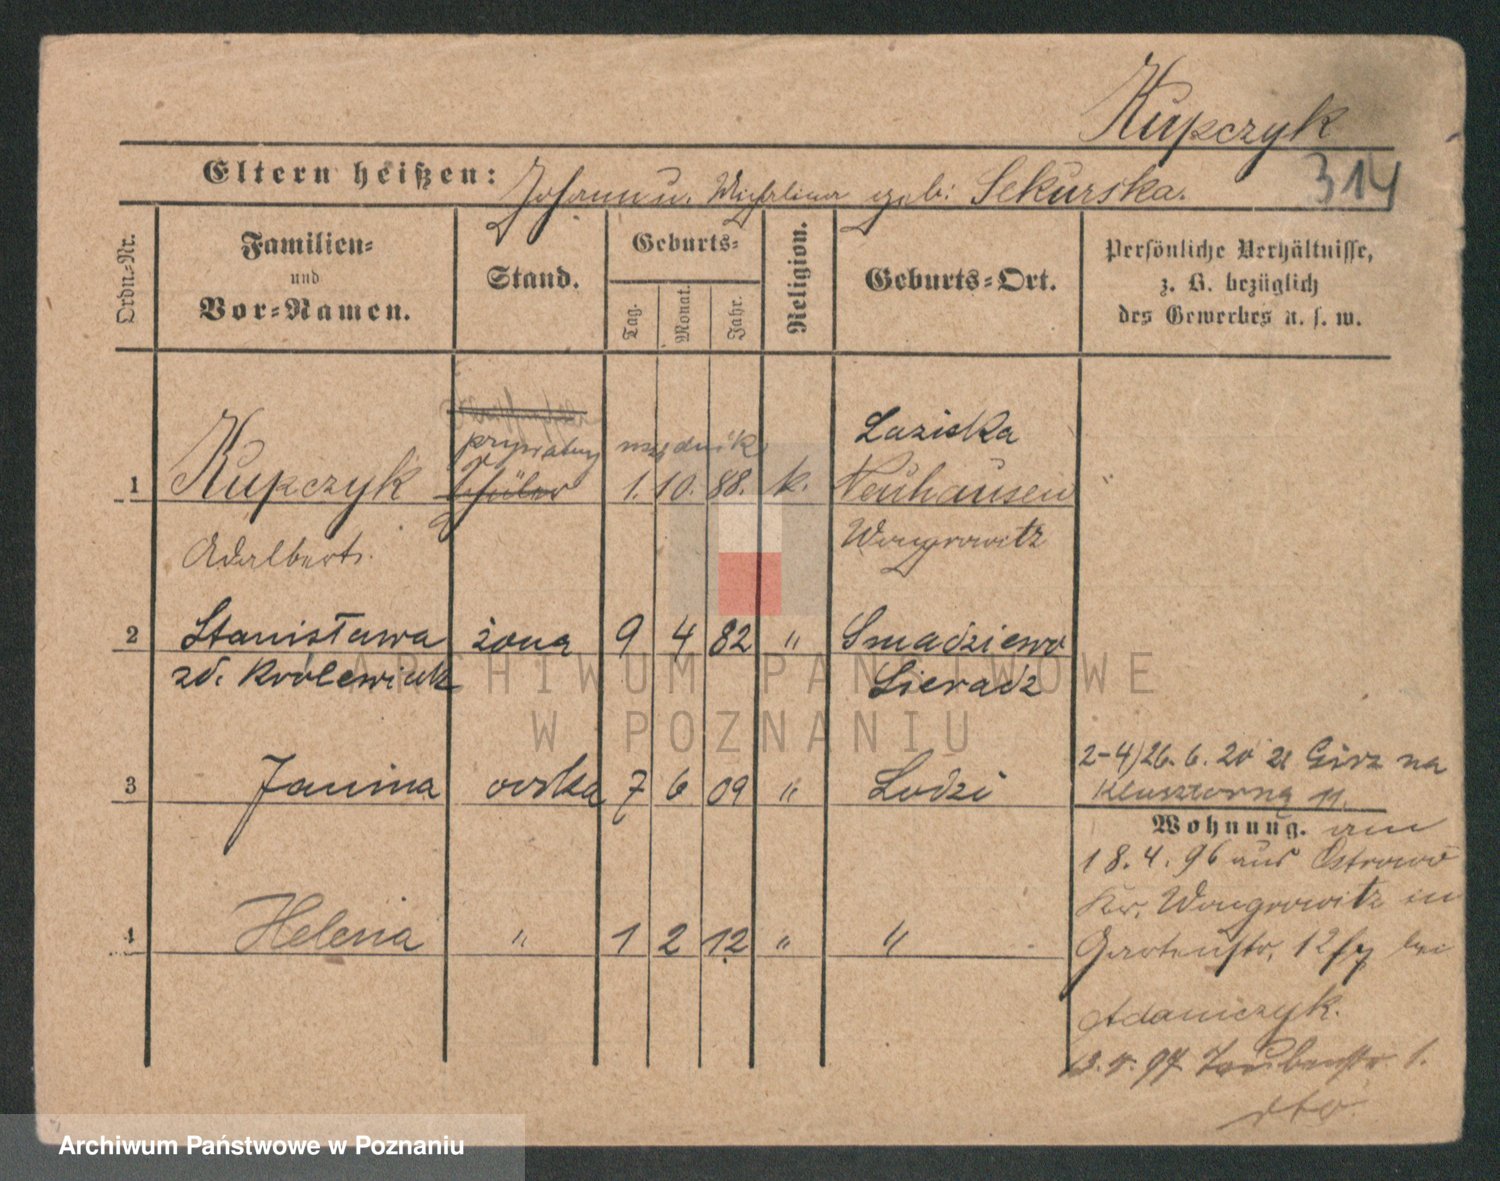 Kupczyk
314
Eltern heißen: Johann u. Michalina geb: Sekurska.
Ordn.=Nr.
Familien=
und
Vor=Namen.
Stand.
Geburts=
Tag.
Monat.
Jahr.
Religion.
Geburts=Ort.
Persönliche Verhältnisse,
z. B. bezüglich
des Gewerbes u. s. w.
prywatny urzędnik
Laziska
1 Kupczyk Schüler 1. 10. 88. k. Neuhausen
Adalbert. Wongrowitz
2 Stanisława żona 9 4 82 " Smadziewo
zd. Królewiak Sieradz
3 Janina córka 7 6 09 " Lodzi
4 Helena " 1 2 12 " "
2-4) 26. 6. 20 z Gór na
Klasztorną 11.
Wohnung. am
18. 4. 96 aus Ostrowo
Kr. Wongrowitz in
Gartenstr. 12 bei
Adamczyk.
13. 5. 97 1.
dto.
ARCHIWUM PAŃSTWOWE
W POZNANIU
Archiwum Państwowe w Poznaniu